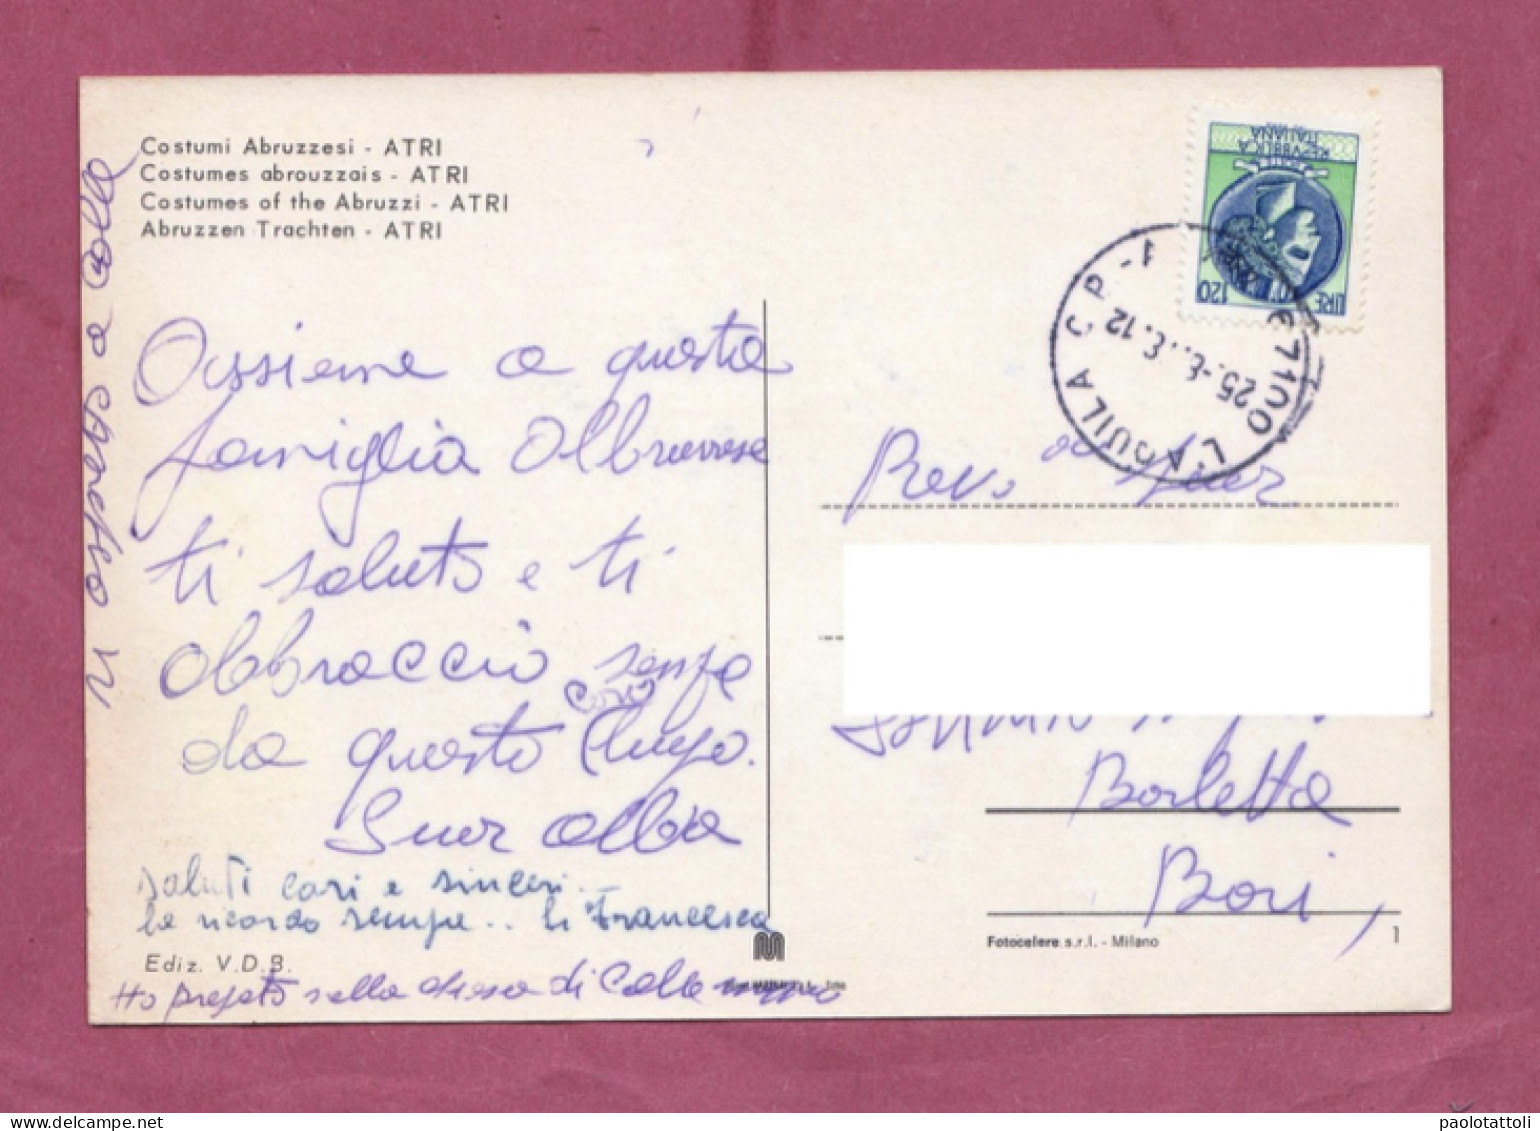 Costumi Abruzzesi - ATRI
Costumes abrouzzais - ATRI
Costumes of the Abruzzi - ATRI
Abruzzen Trachten - ATRI
Assieme a questa
famiglia Abruzzese
ti saluto e ti
abbraccio sempre
da questo luogo.
caro
Suor Alba
Saluti cari e sinceri..
la ricordo sempre.. Francesca
Ediz. V.D.B.
Ho pregato nella chiesa di
Vi aspetto a Colle
REPVBBLICA
ITALIANA
LIRE 120
67100 L'AQUILA C.P. - 1
25.-6. 12
Rev. da Suor
Barletta
Bari,
Fotocelere s.r.l. - Milano
1
paolotattoli